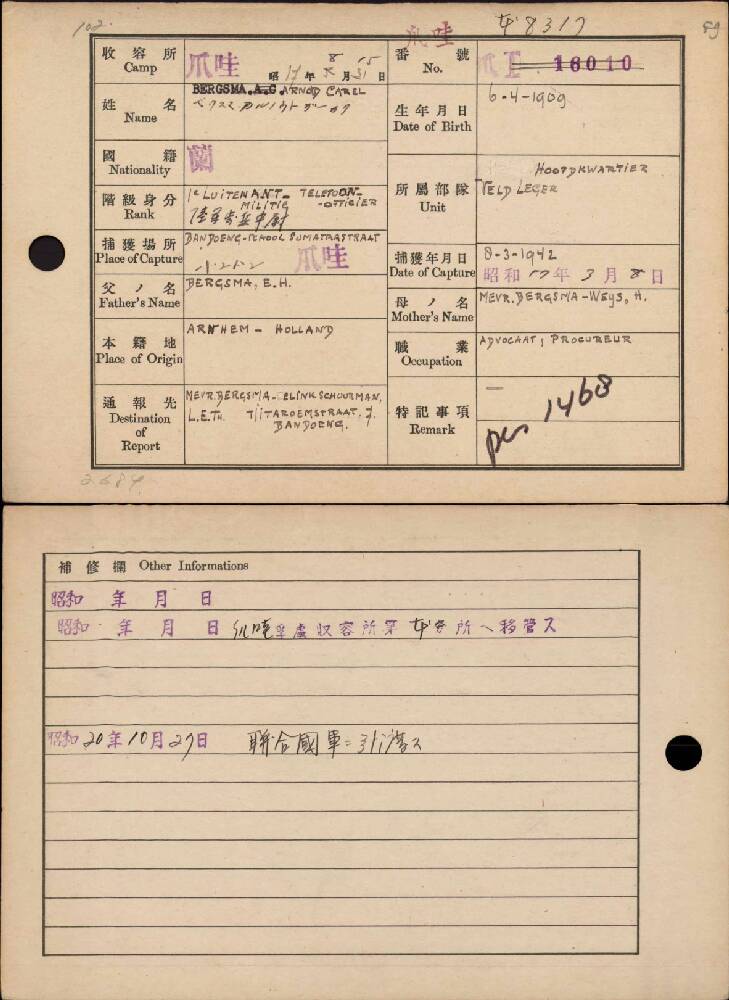 102.
爪哇
本 8317
59
收容所
Camp
爪哇
昭17年8月15日
番號
No.
16010
姓名
Name
BERGSMA.A.C. ARNOD CAREL
生年月日
Date of Birth
6-4-1909
國籍
Nationality
蘭
階級身分
Rank
1e LUITENANT- TELEFOON-
MILITIE -OFFICIER
所属部隊
Unit
HOOFDKWARTIER
VELD LEGER
捕獲場所
Place of Capture
BANDOENG-SCHOOL SUMATRASTRAAT
爪哇
捕獲年月日
Date of Capture
8-3-1942
昭和17年3月8日
父ノ名
Father's Name
BERGSMA, E.H.
母ノ名
Mother's Name
MEVR. BERGSMA-WEYS, H.
本籍地
Place of Origin
ARNHEM - HOLLAND
職業
Occupation
ADVOCAAT, PROCUREUR
通報先
Destination
of
Report
MEVR. BERGSMA-ELINK SCHUURMAN,
L.E.TH. TJITAROEMSTRAAT, 7.
BANDOENG.
特記事項
Remark
—
1468
2684
補修欄 Other Informations
昭和 年 月 日
昭和 年 月 日 爪哇俘虜収容所第 分所ヘ移管ス
昭和20年10月27日 聯合國軍ニ引渡ス